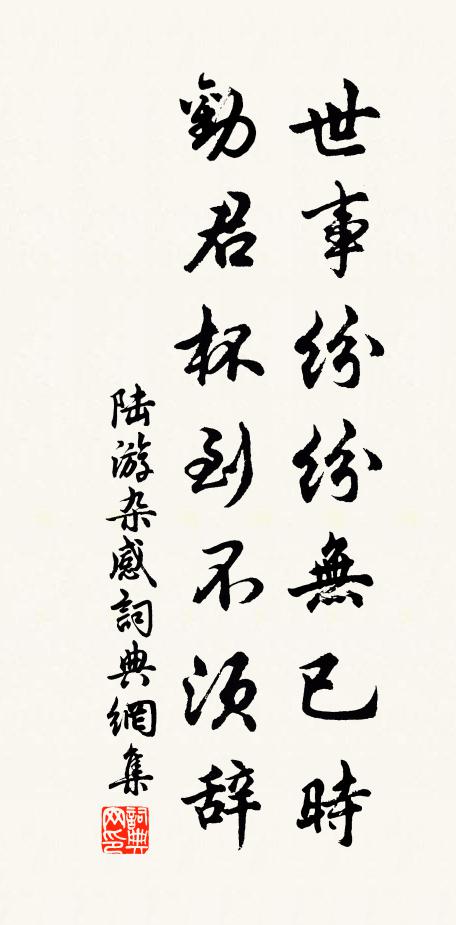 世事紛紛無已時
勸君杯到不須辞
陆游杂感詞典網集
詞典网印